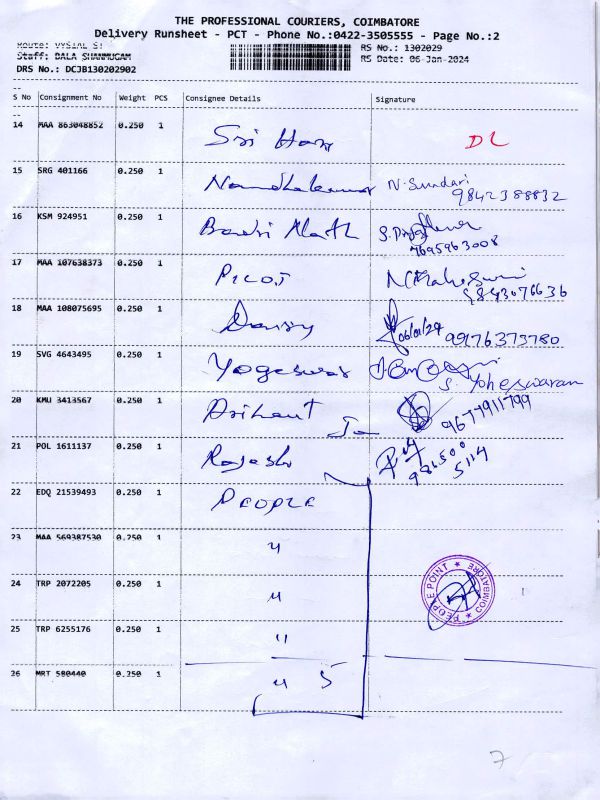 THE PROFESSIONAL COURIERS, COIMBATORE
Delivery Runsheet - PCT - Phone No.:0422-3505555 - Page No.:2
Route: VYSIAL ST RS No.: 1302029
Staff: BALA SHANMUGAM RS Date: 06-Jan-2024
DRS No.: DCJB130202902
S No Consignment No Weight PCS Consignee Details Signature
14 MAA 863048852 0.250 1 Sri Hari DL
15 SRG 401166 0.250 1 Nandhakumar N. Sundari
9842388832
16 KSM 924951 0.250 1 Badri Nath
7695963008
17 MAA 107638373 0.250 1 PILOT
9843076636
18 MAA 108075695 0.250 1 06/01/24 99176373780
19 SVG 4643495 0.250 1 Yogeswar
S. Yoheswaran
20 KMU 3413567 0.250 1 Arihant 9677911799
21 POL 1611137 0.250 1 Rajesh 986500
5114
22 EDQ 21539493 0.250 1 PEOPLE
23 MAA 569387530 0.250 1 "
24 TRP 2072205 0.250 1 " PEOPLE POINT ★ COIMBATORE ★
25 TRP 6255176 0.250 1 "
26 MRT 580440 0.250 1 " 5
7